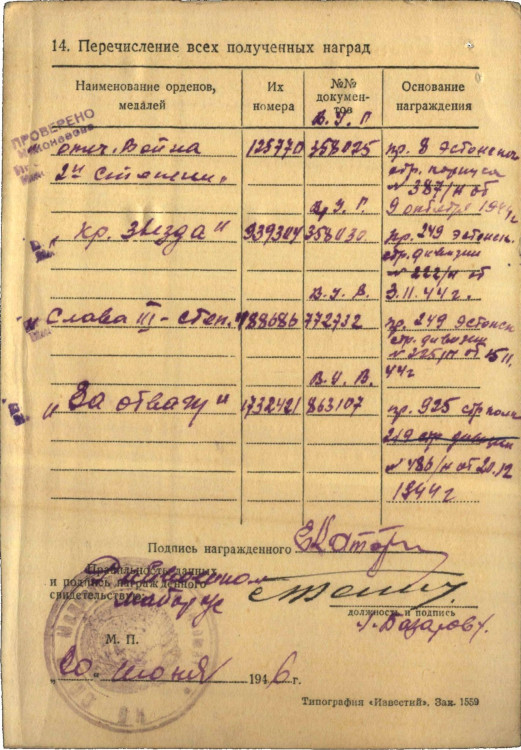 14. Перечисление всех полученных наград
Наименование орденов, медалей
Их номера
№№ документов
Основание награждения
ПРОВЕРЕНО
В.У.П.
отеч. Война 123770 358025 пр. 8 Эстонского
2й степени" стр. корпуса
№ 387/н от
9 октября 1944г.
В.У.П.
"Кр. Звезда" 939304 358030 пр. 249 Эстонск.
стр. дивизии
№ 222/н от
3.11.44г.
"Слава III-степ." 188686 772732 пр. 249 Эстонск
стр дивизии
№ 225/н от 15 11.
44г
"За отвагу" 1732421 863107 пр. 925 стр полка
249 стр дивизии
№ 486/н от 20.12
1944г
Подпись награжденного
Правильность данных
и подпись награжденного
свидетельствую:
должность и подпись
/. Базаров/.
М. П.
"20" июня 1946 г.
Типография «Известий». Зак. 1559